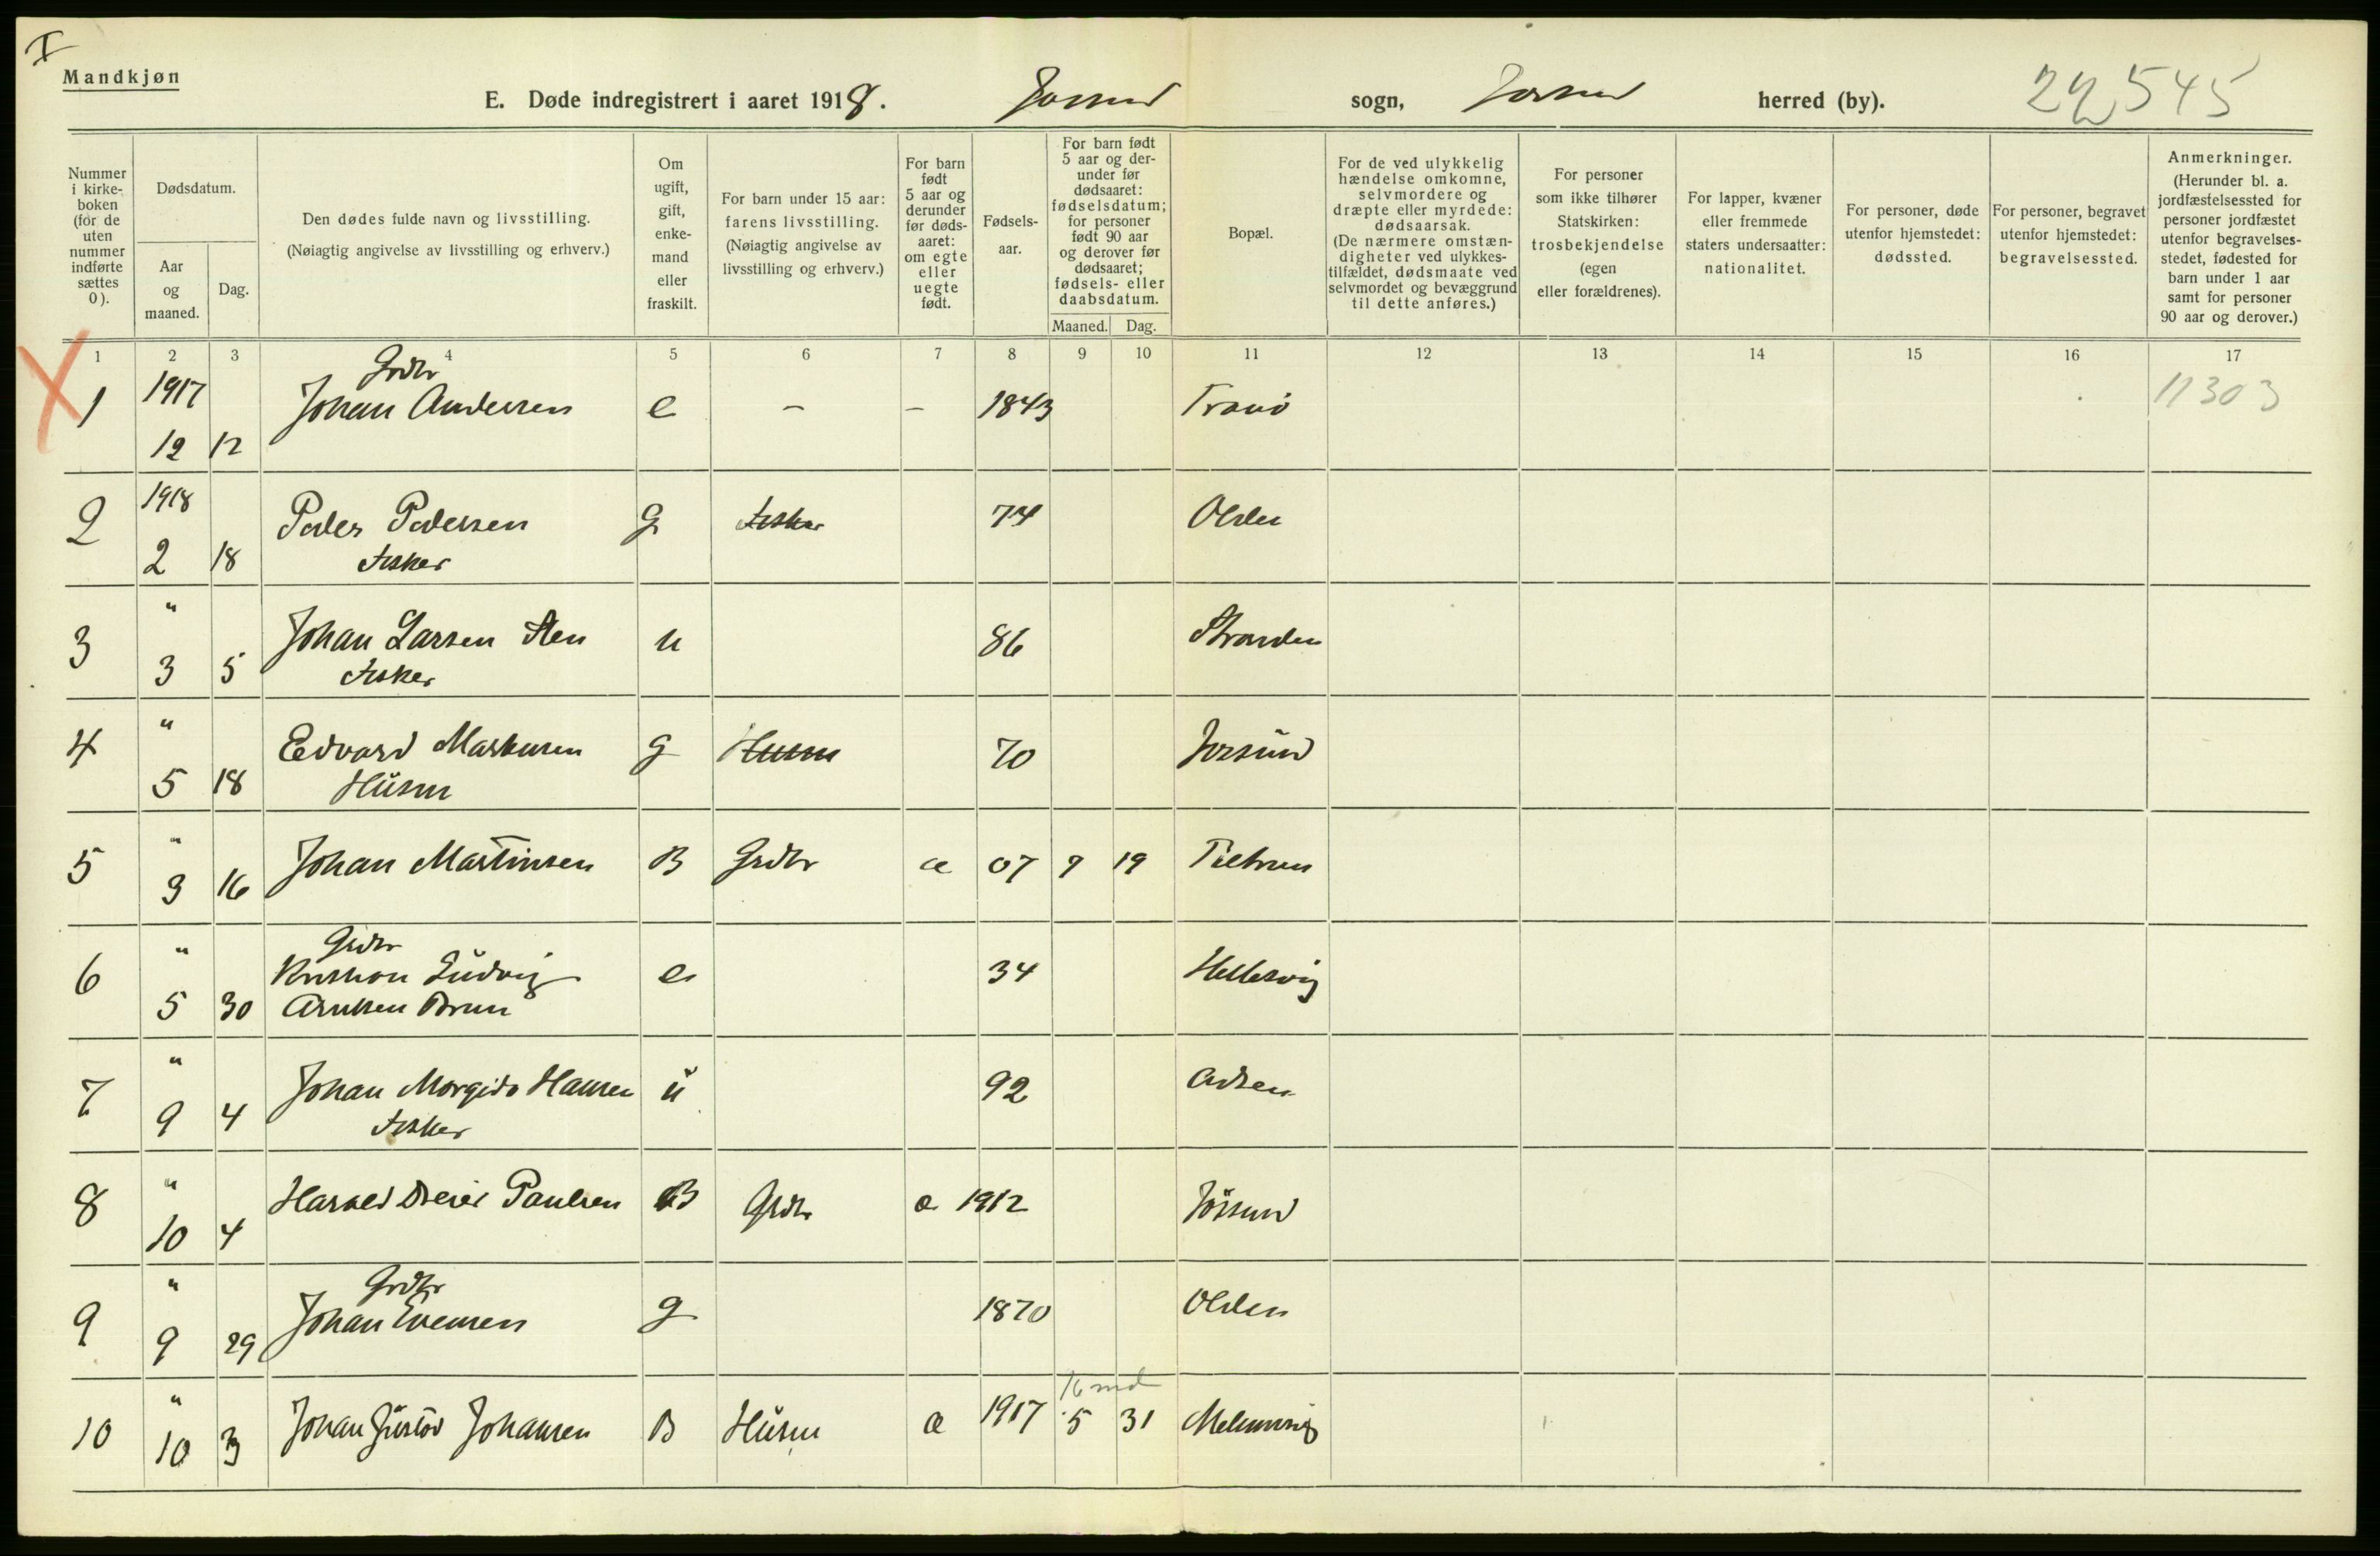 I
Mandkjøn
E. Døde indregistrert i aaret 1918. Jossund sogn, Jossund herred (by). 22545
Nummer i kirke- boken (for de uten nummer indførte sættes 0).
Dødsdatum.
Aar og maaned.
Dag.
Den dødes fulde navn og livsstilling.
(Nøiagtig angivelse av livsstilling og erhverv.)
Om ugift, gift, enke- mand eller fraskilt.
For barn under 15 aar: farens livsstilling. (Nøiagtig angivelse av livsstilling og erhverv.)
For barn født 5 aar og derunder før døds- aaret: om egte eller uegte født.
Fødsels- aar.
For barn født 5 aar og der- under før dødsaaret: fødselsdatum; for personer født 90 aar og derover før dødsaaret; fødsels- eller daabsdatum.
Maaned. Dag.
Bopæl.
For de ved ulykkelig hændelse omkomne, selvmordere og dræpte eller myrdede: dødsaarsak. (De nærmere omstæn- digheter ved ulykkes- tilfældet, dødsmaate ved selvmordet og bevæggrund til dette anføres.)
For personer som ikke tilhører Statskirken: trosbekjendelse (egen eller forældrenes).
For lapper, kvæner eller fremmede staters undersaatter: nationalitet.
For personer, døde utenfor hjemstedet: dødssted.
For personer, begravet utenfor hjemstedet: begravelsessted.
Anmerkninger. (Herunder bl. a. jordfæstelsessted for personer jordfæstet utenfor begravelses- stedet, fødested for barn under 1 aar samt for personer 90 aar og derover.)
1 2 3 4 5 6 7 8 9 10 11 12 13 14 15 16 17
Grdbr
1 1917 Johan Andersen e – – 1843 Tranø 11303
12 12
2 1918 Peder Pedersen g Fisker 74 Olden
2 18 Fisker
3 " Johan Larsen u 86 Stranden
3 5 Fisker
4 " Edvard Markusen g Husm 70 Jossund
5 18 Husm
5 " Johan Martinsen B Grdbr æ 07 9 19
3 16
" Grdbr
6 Kristian Ludvig e 34 Hellesvig
5 30 Arntsen Brun
7 " Johan Margido Hansen u 92
9 4 Fisker
8 " Harald Paulsen B Grdbr æ 1912 Jössund
10 4
" Grdbr
9 Johan Evensen g 1870 Olden
9 29
16 md
10 " Johan Gustav Johansen B Husm æ 1917 5 31
10 3